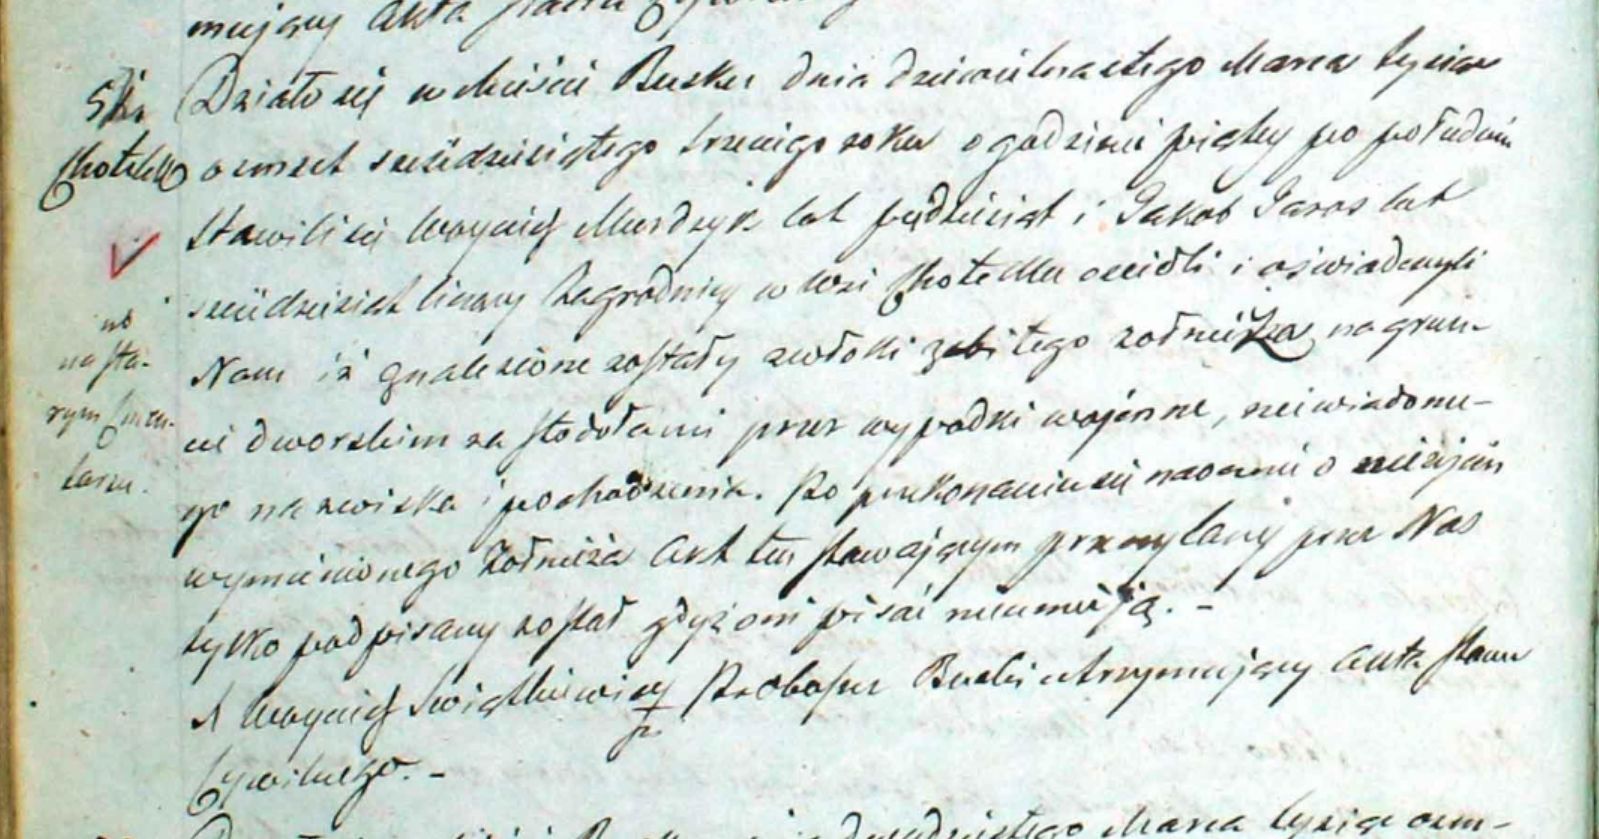 mujący Akta Stanu
58.
Chotelek
Działo się w Mieście Busku dnia dziewiętnastego Marca tysiąc
osmset sześćdziesiątego trzeciego roku o godzinie piątey po południu
stawili się Woyciech Murdzyk lat pięćdziesiąt i Jakob Jaros lat
sześćdziesiąt liczący Zagrodnicy w wsi Chotelku osiedli i oświadczyli
Nam iż znalezione zostały zwłoki zabitego żołnierza na grun-
cie dworskim za stodołami przez wypadki wojenne, niewiadome-
go nazwiska i pochodzenia. Po przekonaniu się naocznie o zeiściu
wymienionego Żołnierza Akt ten stawającym przeczytany przez Nas
tylko podpisany został gdyż oni pisać nieumieją. -
X Woyciech Świątkiewicz Proboszcz Buski utrzymujący Akta Stanu
Cywilnego. -
na sta-
rym Cmen-
tarzu.
dwudziestego Marca tysiąc osm-